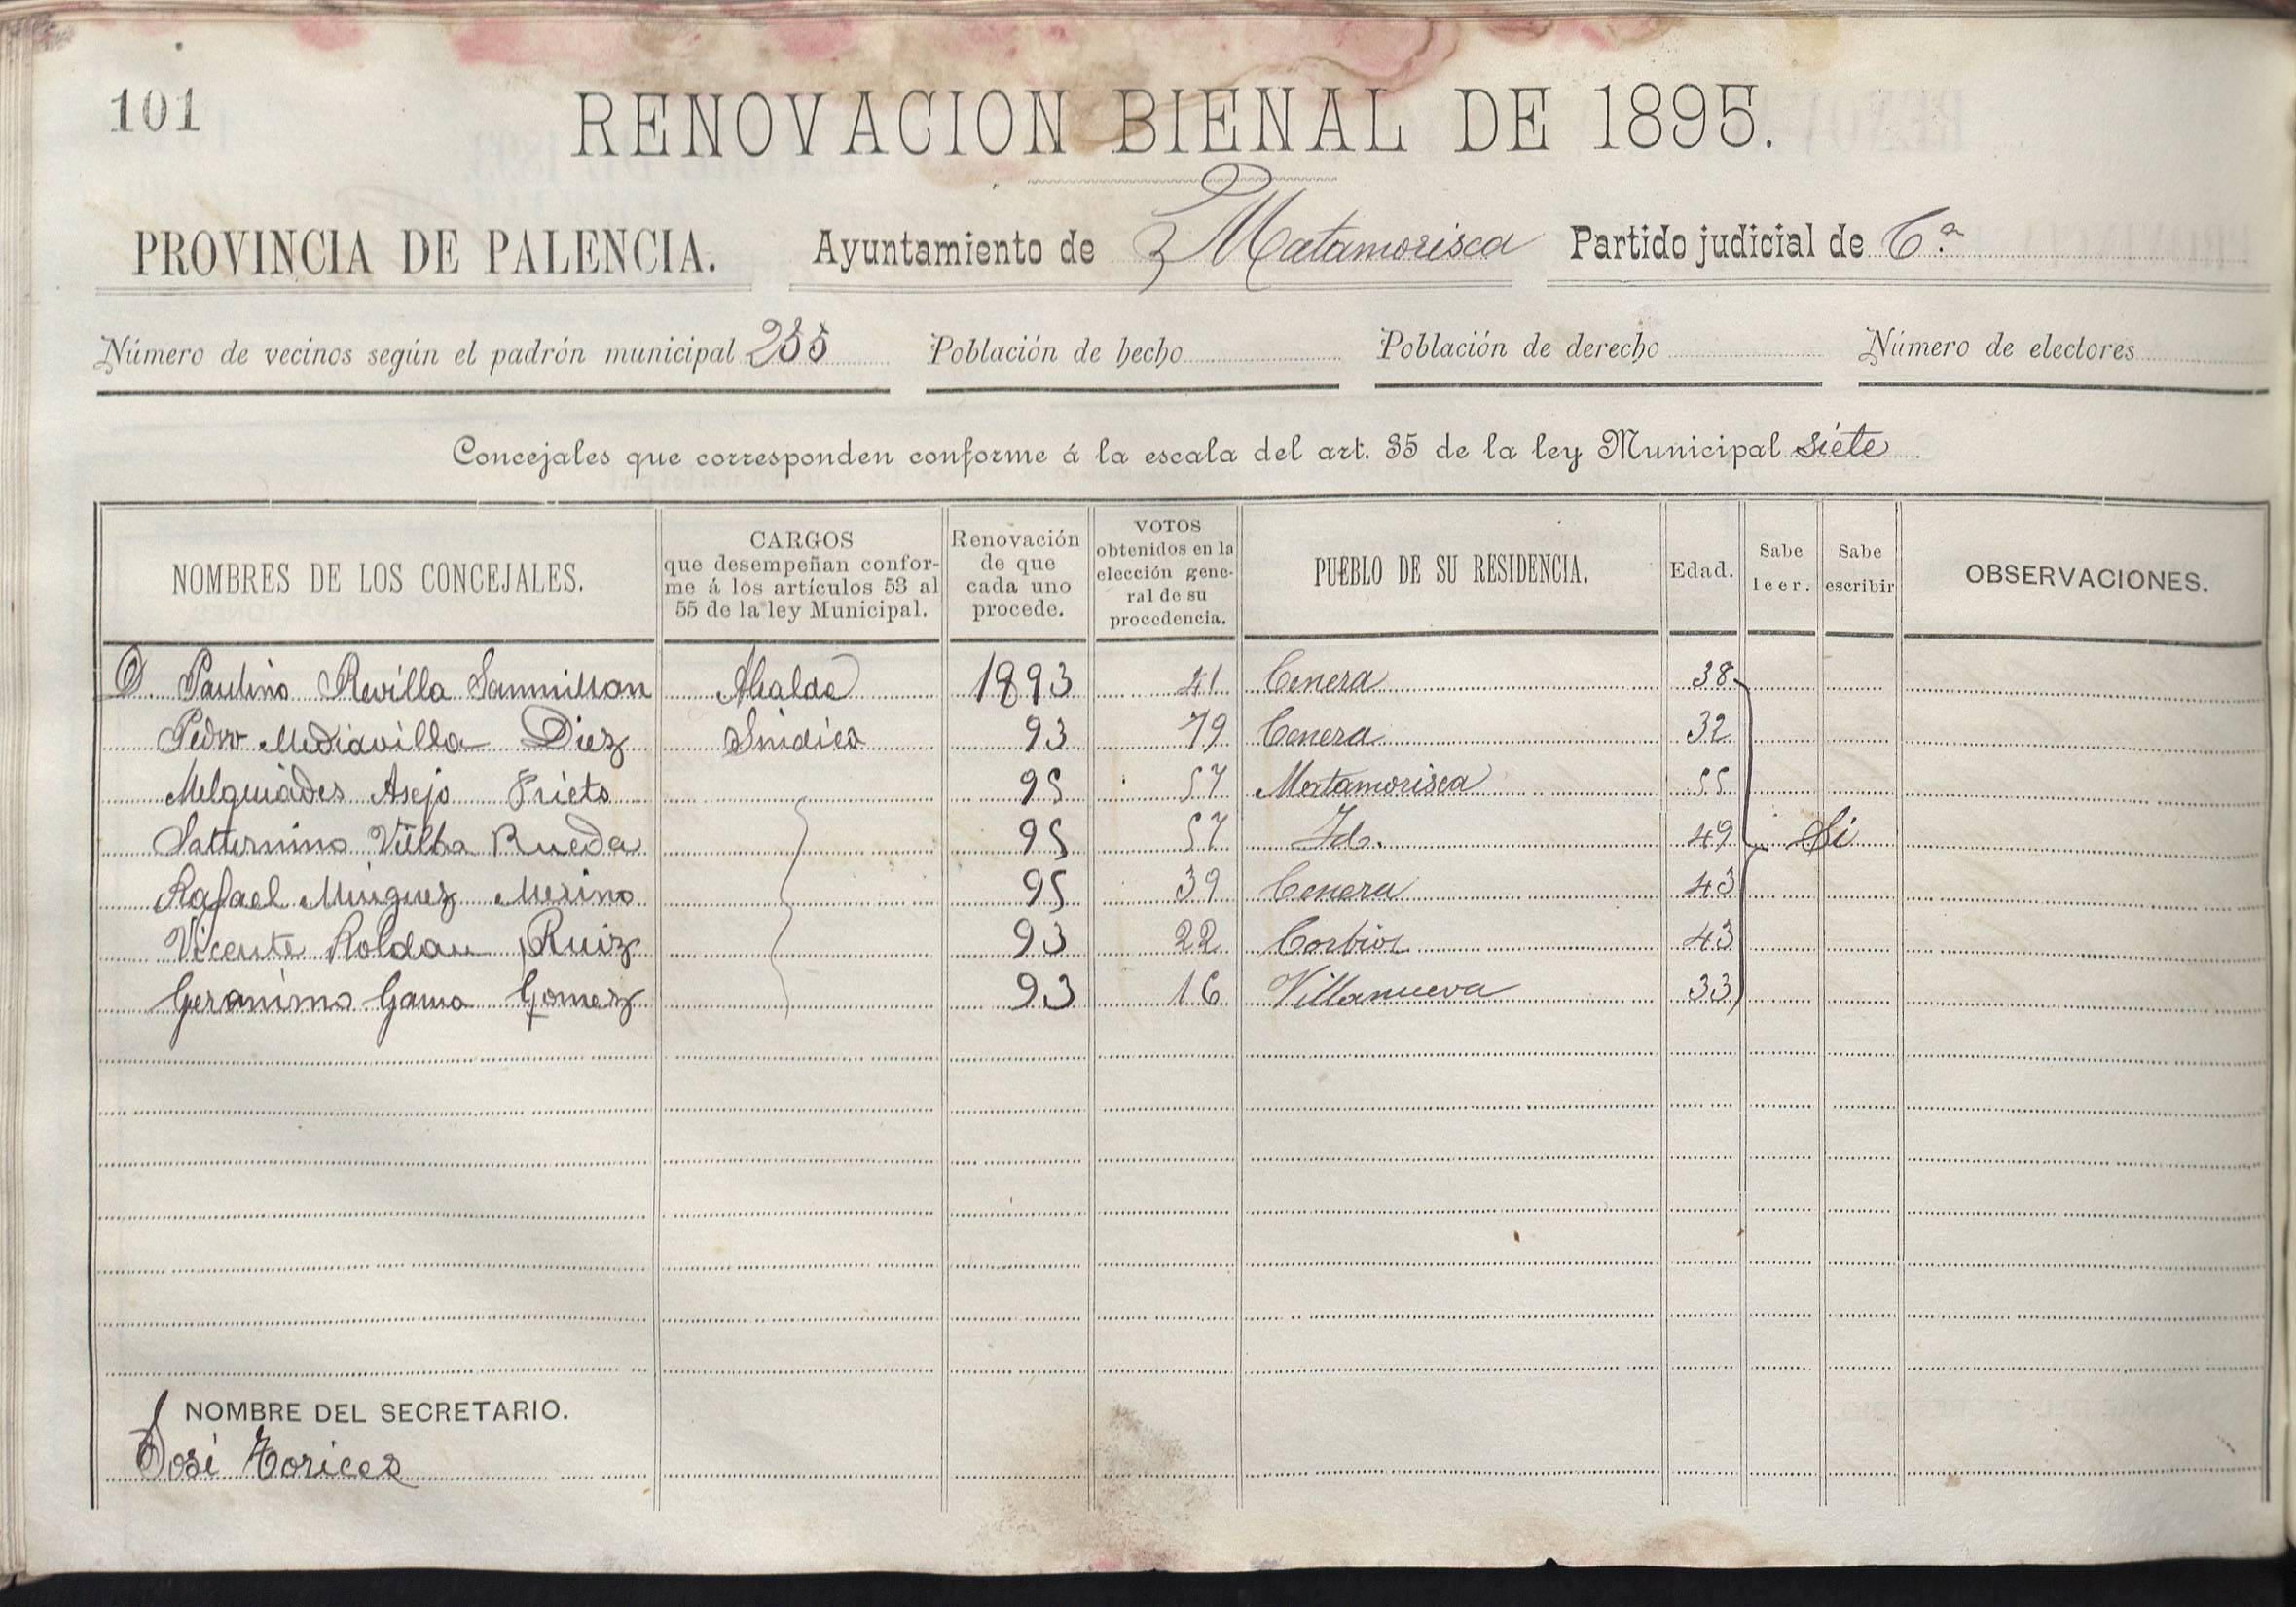 101
RENOVACION BIENAL DE 1895.
PROVINCIA DE PALENCIA. Ayuntamiento de Matamorisca Partido judicial de C.ª
Número de vecinos según el padrón municipal 255 Población de hecho Población de derecho Número de electores
Concejales que corresponden conforme á la escala del art. 35 de la ley Municipal siete
NOMBRES DE LOS CONCEJALES.
CARGOS
que desempeñan confor-
me á los artículos 53 al
55 de la ley Municipal.
Renovación
de que
cada uno
procede.
VOTOS
obtenidos en la
elección gene-
ral de su
procedencia.
PUEBLO DE SU RESIDENCIA.
Edad.
Sabe
leer.
Sabe
escribir
OBSERVACIONES.
D. Paulino Revilla Sanmillan Alcalde 1893 41 Cenera 38
Pedro Mediavilla Diez Sindico 93 79 Cenera 32
Melquiades Asejo Prieto 95 57 Matamorisca 55
Satternino Villba Rueda 95 57 Id. 49 Si
Rafael Minguez Merino 95 39 Cenera 43
Vicente Roldan Ruiz 93 22 Corbios 43
Geronimo Gama Gomez 93 16 Villanueva 33
NOMBRE DEL SECRETARIO.
José Torices